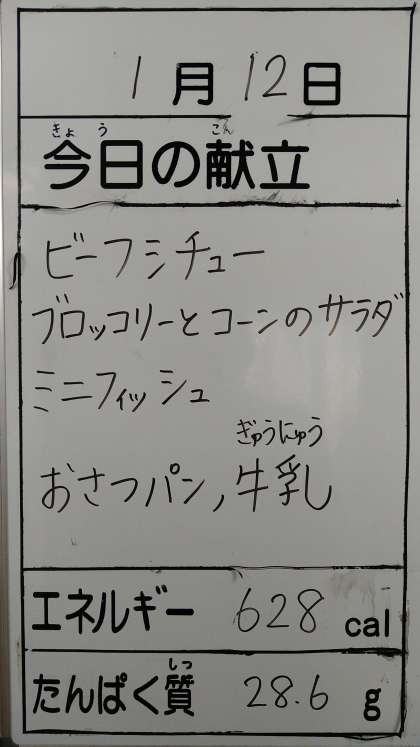 1月12日
きょう こん
今日の献立
ビーフシチュー
ブロッコリーとコーンのサラダ
ミニフィッシュ
ぎゅうにゅう
おさつパン,牛乳
エネルギー 628 cal
しつ
たんぱく質 28.6 g